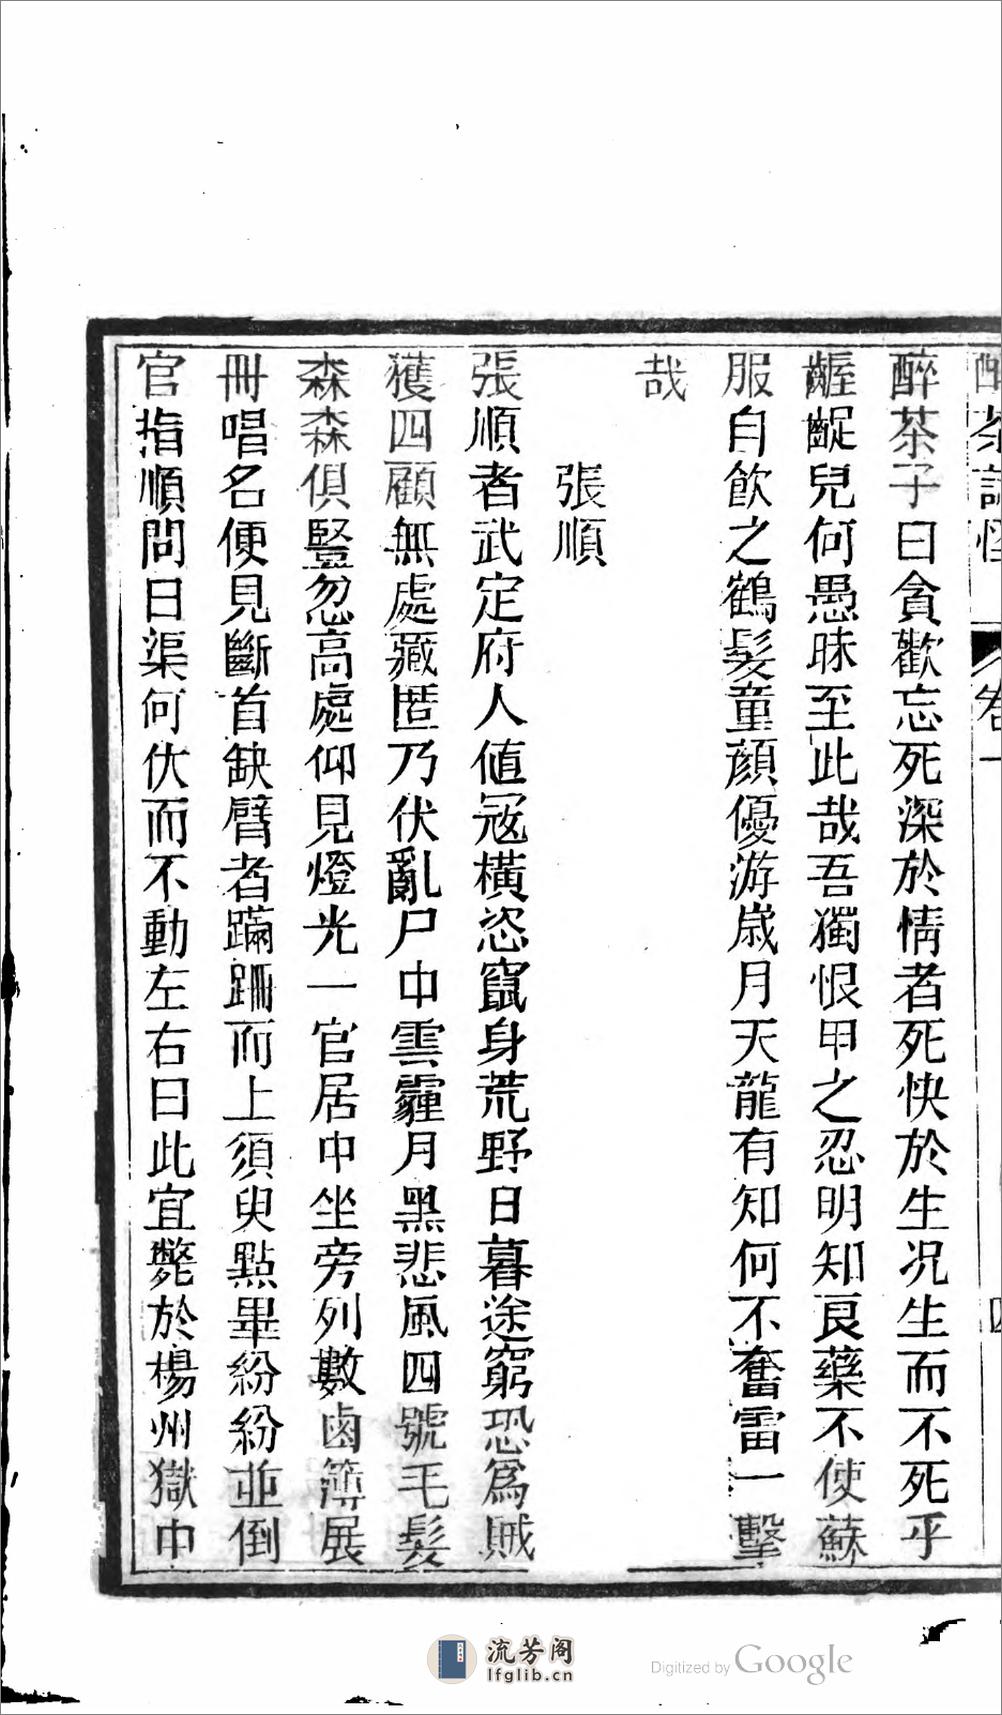 醉茶誌怪 卷一 四
醉茶子曰貪歡忘死深於情者死快於生况生而不死乎
齷齪兒何愚昧至此哉吾獨恨甲之忍明知良藥不使蘇
服自飲之鶴髮童顏優游歲月天龍有知何不奮雷一擊
哉
張順
張順者武定府人值寇橫恣竄身荒野日暮途窮恐爲賊
獲四顧無處藏匿乃伏亂尸中雲霾月黑悲風四號毛髮
森森俱豎忽高處仰見燈光一官居中坐旁列數鹵簿展
冊唱名便見斷首缺臂者蹣跚而上須臾點畢紛紛並倒
官指順問曰渠何伏而不動左右曰此宜斃於楊州獄中
流芳阁
lfglib.cn
Digitized by Google